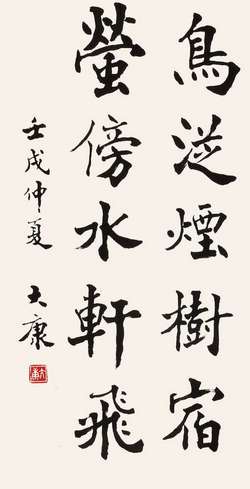 鳥從煙樹宿
螢傍水軒飛
壬戌仲夏
大康